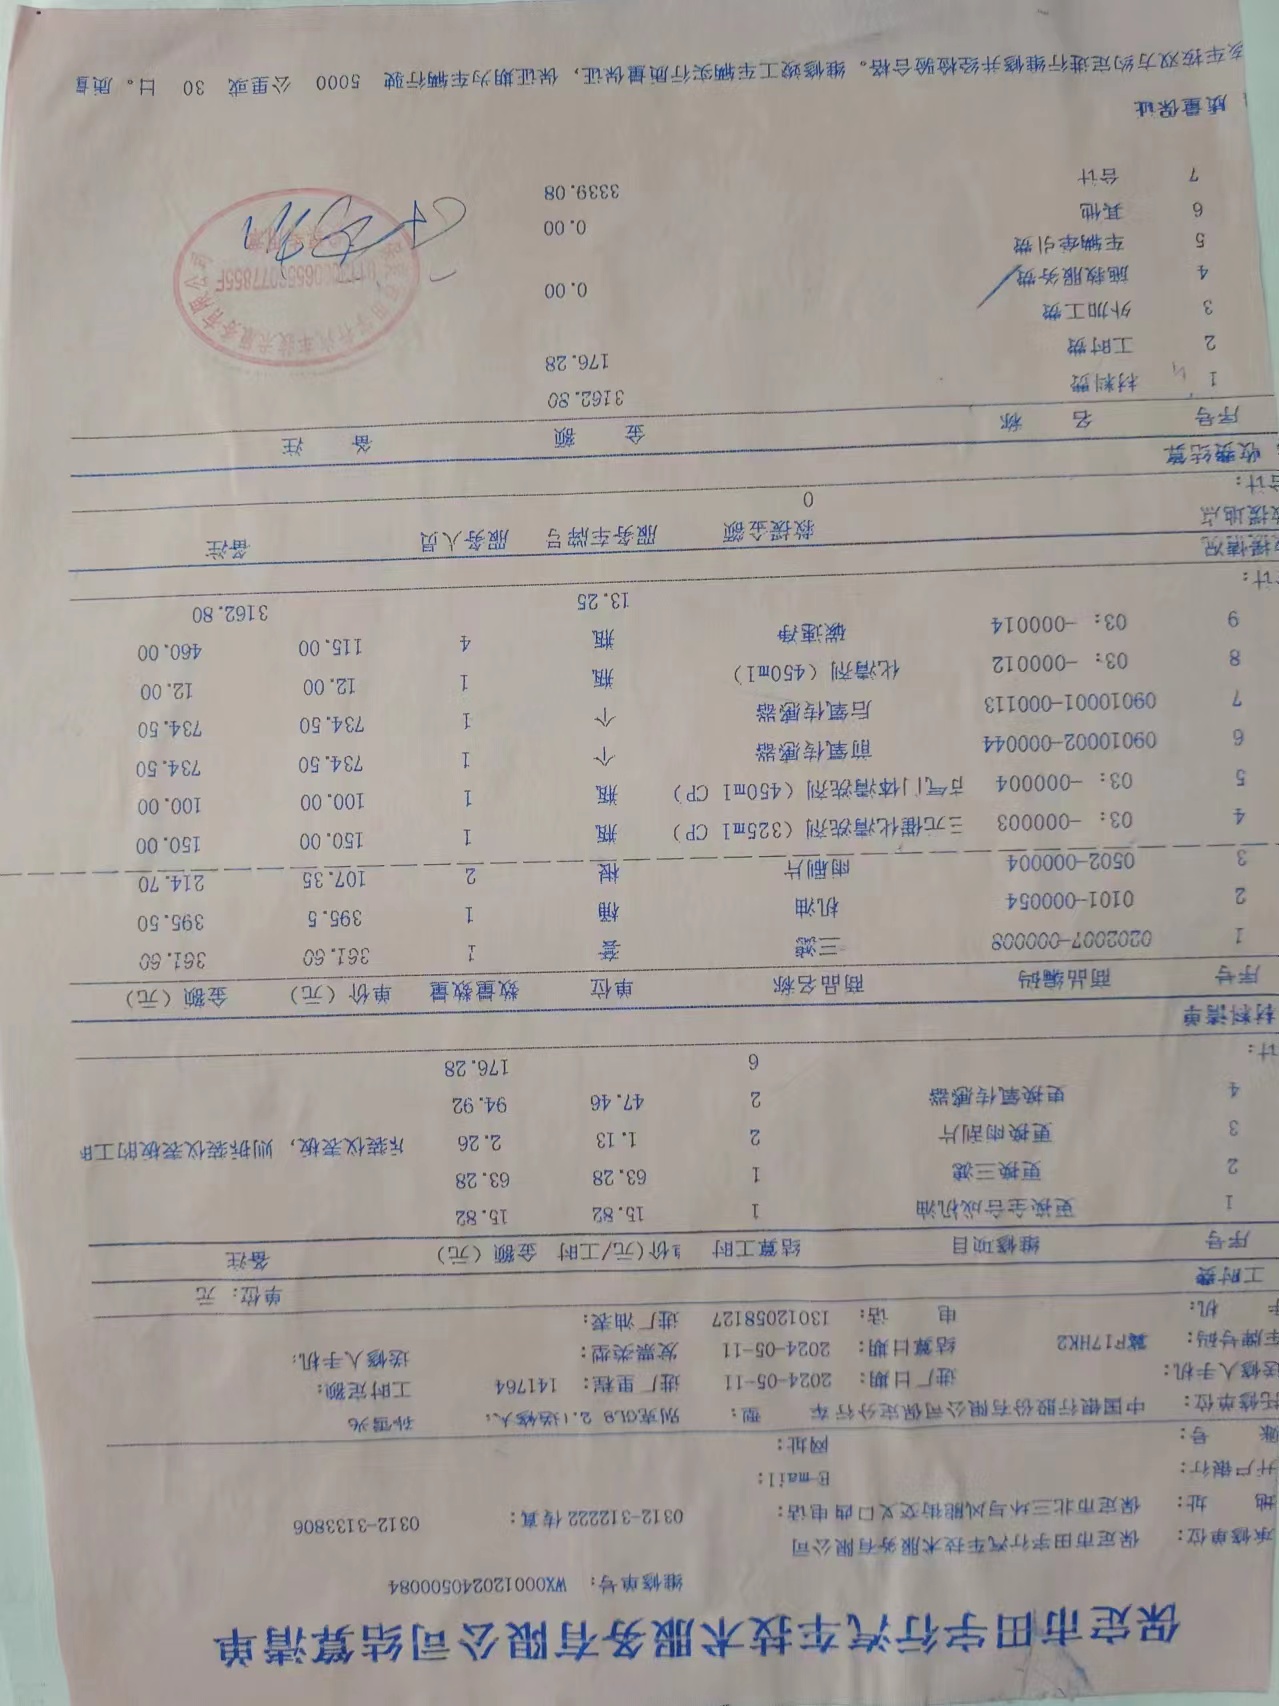 保定市田宇行汽车技术服务有限公司结算清单
维修单号: WX00012024050084
承修单位: 保定市田宇行汽车技术服务有限公司
地 址: 保定市北三环与风能街交叉口西 电话: 0312-312222 传真: 0312-3133806
开户银行: E-mail:
账 号: 网址:
托修单位: 中国银行股份有限公司保定分行 车 型: 别克GL8 2.( 送修人: 孙雷光
送修人手机: 进厂日期: 2024-05-11 进厂里程: 141764 工时定额:
车牌号码: 冀F17HK2 结算日期: 2024-05-11 发票类型: 送修人手机:
手 机: 电 话: 13012058127 进厂油表:
工时费 单位: 元
序号 维修项目 结算工时 单价(元/工时 金额(元) 备注
1 更换全合成机油 1 15.82 15.82
2 更换三滤 1 63.28 63.28
3 更换雨刮片 2 1.13 2.26 斥装仪表板, 则拆装仪表板的工时
4 更换氧传感器 2 47.46 94.92
计: 6 176.28
材料清单
序号 商品编码 商品名称 单位 数量数量 单价(元) 金额(元)
1 0202007-000008 三滤 套 1 361.60 361.60
2 0101-000054 机油 桶 1 395.5 395.50
3 0502-000004 雨刷片 根 2 107.35 214.70
4 03: -000003 三元催化清洗剂(325ml CP) 瓶 1 150.00 150.00
5 03: -000004 节气门体清洗剂(450ml CP) 瓶 1 100.00 100.00
6 09010002-000044 前氧传感器 个 1 734.50 734.50
7 09010001-000113 后氧传感器 个 1 734.50 734.50
8 03: -000012 化清剂(450ml) 瓶 1 12.00 12.00
9 03: -000014 碳速净 瓶 4 115.00 460.00
合计: 13.25 3162.80
救援情况
救援地点 救援金额 服务车牌号 服务人员 备注
合计: 0
收费结算
序号 名 称 金 额 备 注
1 材料费 3162.80
2 工时费 176.28
3 外加工费
4 施救服务费 0.00
5 车辆牵引费
6 其他 0.00
7 合计 3339.08
质量保证
该车按双方约定进行维修并经检验合格。维修竣工车辆实行质量保证, 保证期为车辆行驶 5000 公里或 30 日。质量